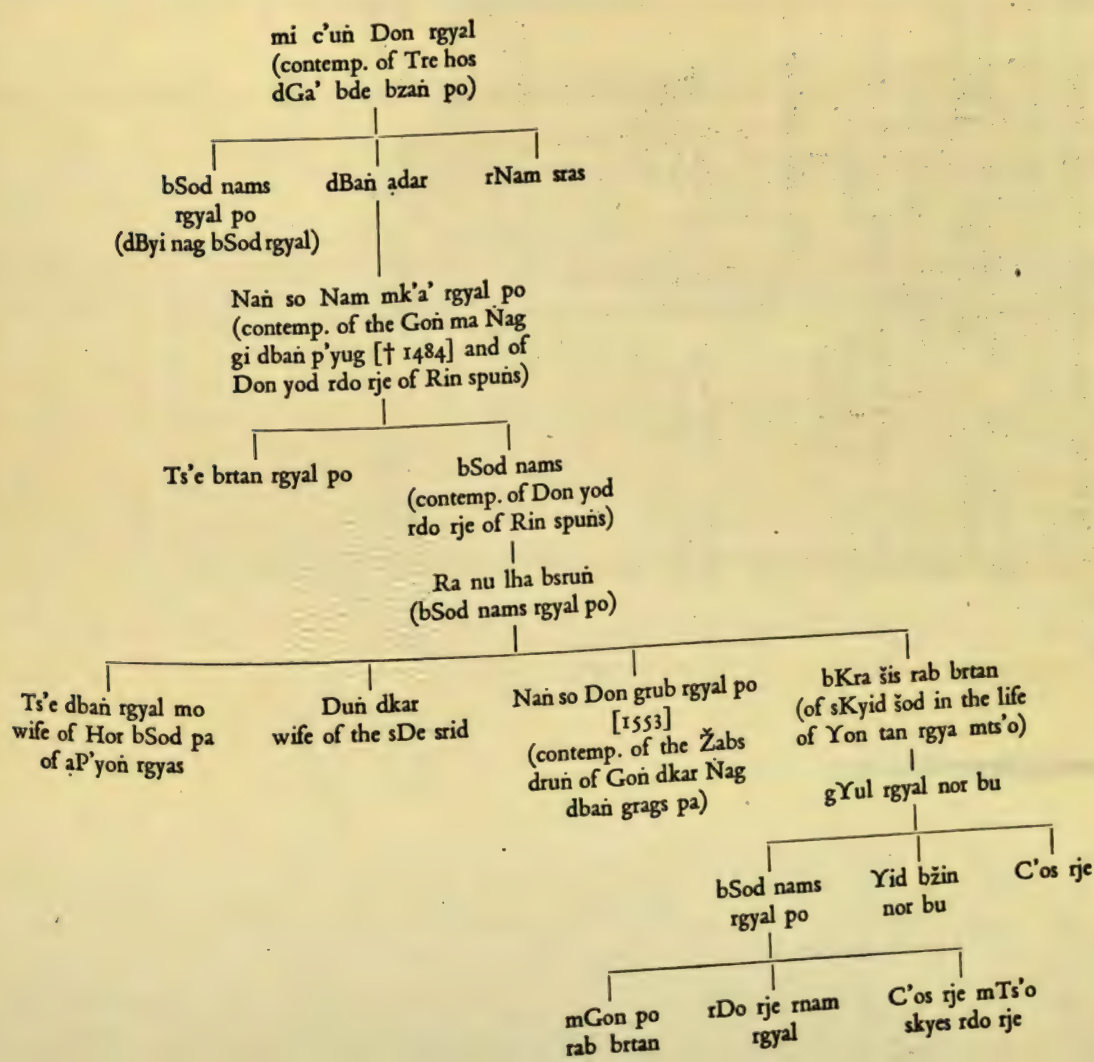 mi c'uṅ Don rgyal
(contemp. of Tre hos
dGa' bde bzaṅ po)
bSod nams
rgyal po
(dByi nag bSod rgyal)
dBaṅ ạdar
rNam sras
Naṅ so Nam mk'a' rgyal po
(contemp. of the Goṅ ma Ṅag
gi dbaṅ p'yug [† 1484] and of
Don yod rdo rje of Rin spuṅs)
Ts'e brtan rgyal po
bSod nams
(contemp. of Don yod
rdo rje of Rin spuṅs)
Ra nu lha bsruṅ
(bSod nams rgyal po)
Ts'e dbaṅ rgyal mo
wife of Hor bSod pa
of ạP'yoṅ rgyas
Duṅ dkar
wife of the sDe srid
Naṅ so Don grub rgyal po
[1553]
(contemp. of the Žabs
druṅ of Goṅ dkar Ṅag
dbaṅ grags pa)
bKra šis rab brtan
(of sKyid šod in the life
of Yon tan rgya mts'o)
gYul rgyal nor bu
bSod nams
rgyal po
Yid bžin
nor bu
C'os rje
mGon po
rab brtan
rDo rje rnam
rgyal
C'os rje mTs'o
skyes rdo rje